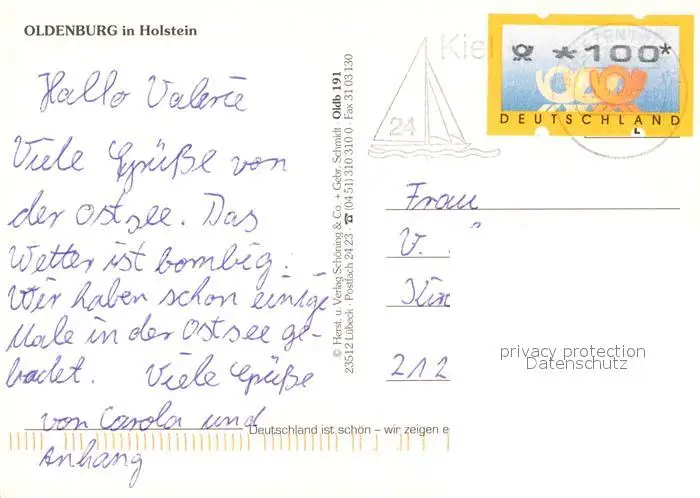 OLDENBURG in Holstein
Hallo Valerie
Viele Grüße von
der Ostsee. Das
Wetter ist bombig.
Wir haben schon einige
Male in der Ostsee ge-
badet. Viele Grüße
von Carola und
Anhang
© Herst. u. Verlag Schöning & Co. + Gebr. Schmidt · Oldb 191
23512 Lübeck · Postfach 24 23 · ☎ (04 51) 310 310 0 · Fax 31 03 130
Deutschland ist schön – wir zeigen e
Kiel
24
*100*
DEUTSCHLAND
L
Frau
V.
212
privacy protection
Datenschutz